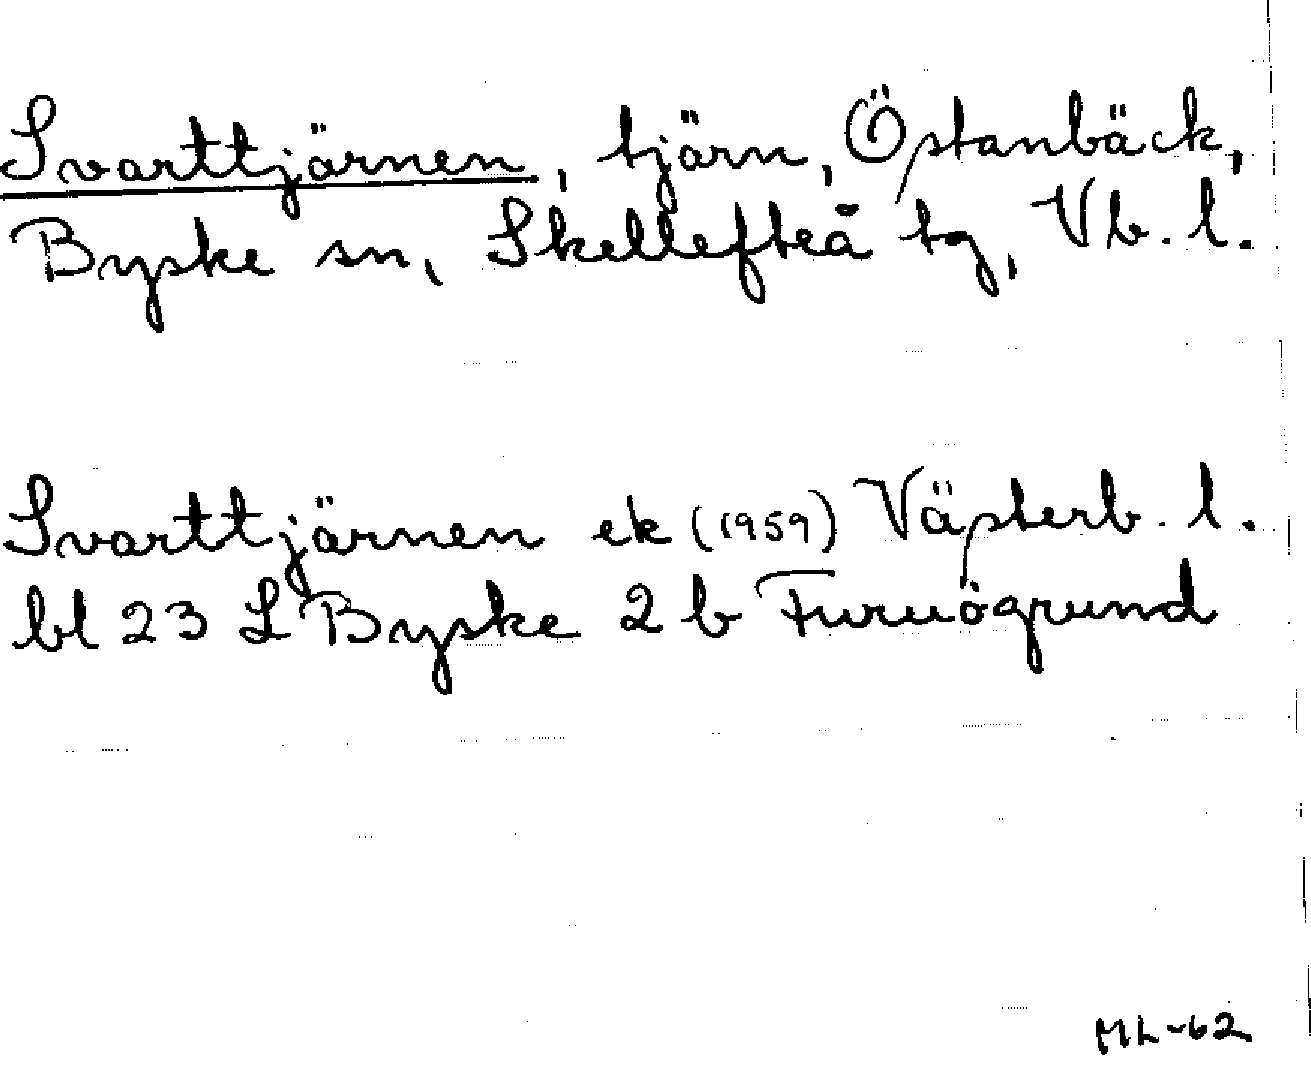 Svarttjärnen, tjärn, Östanbäck,
Byske sn, Skellefteå tg, Vb. l.
Svarttjärnen ek (1959) Västerb. l.
bl 23 L Byske 2 b Furuögrund
ML-62